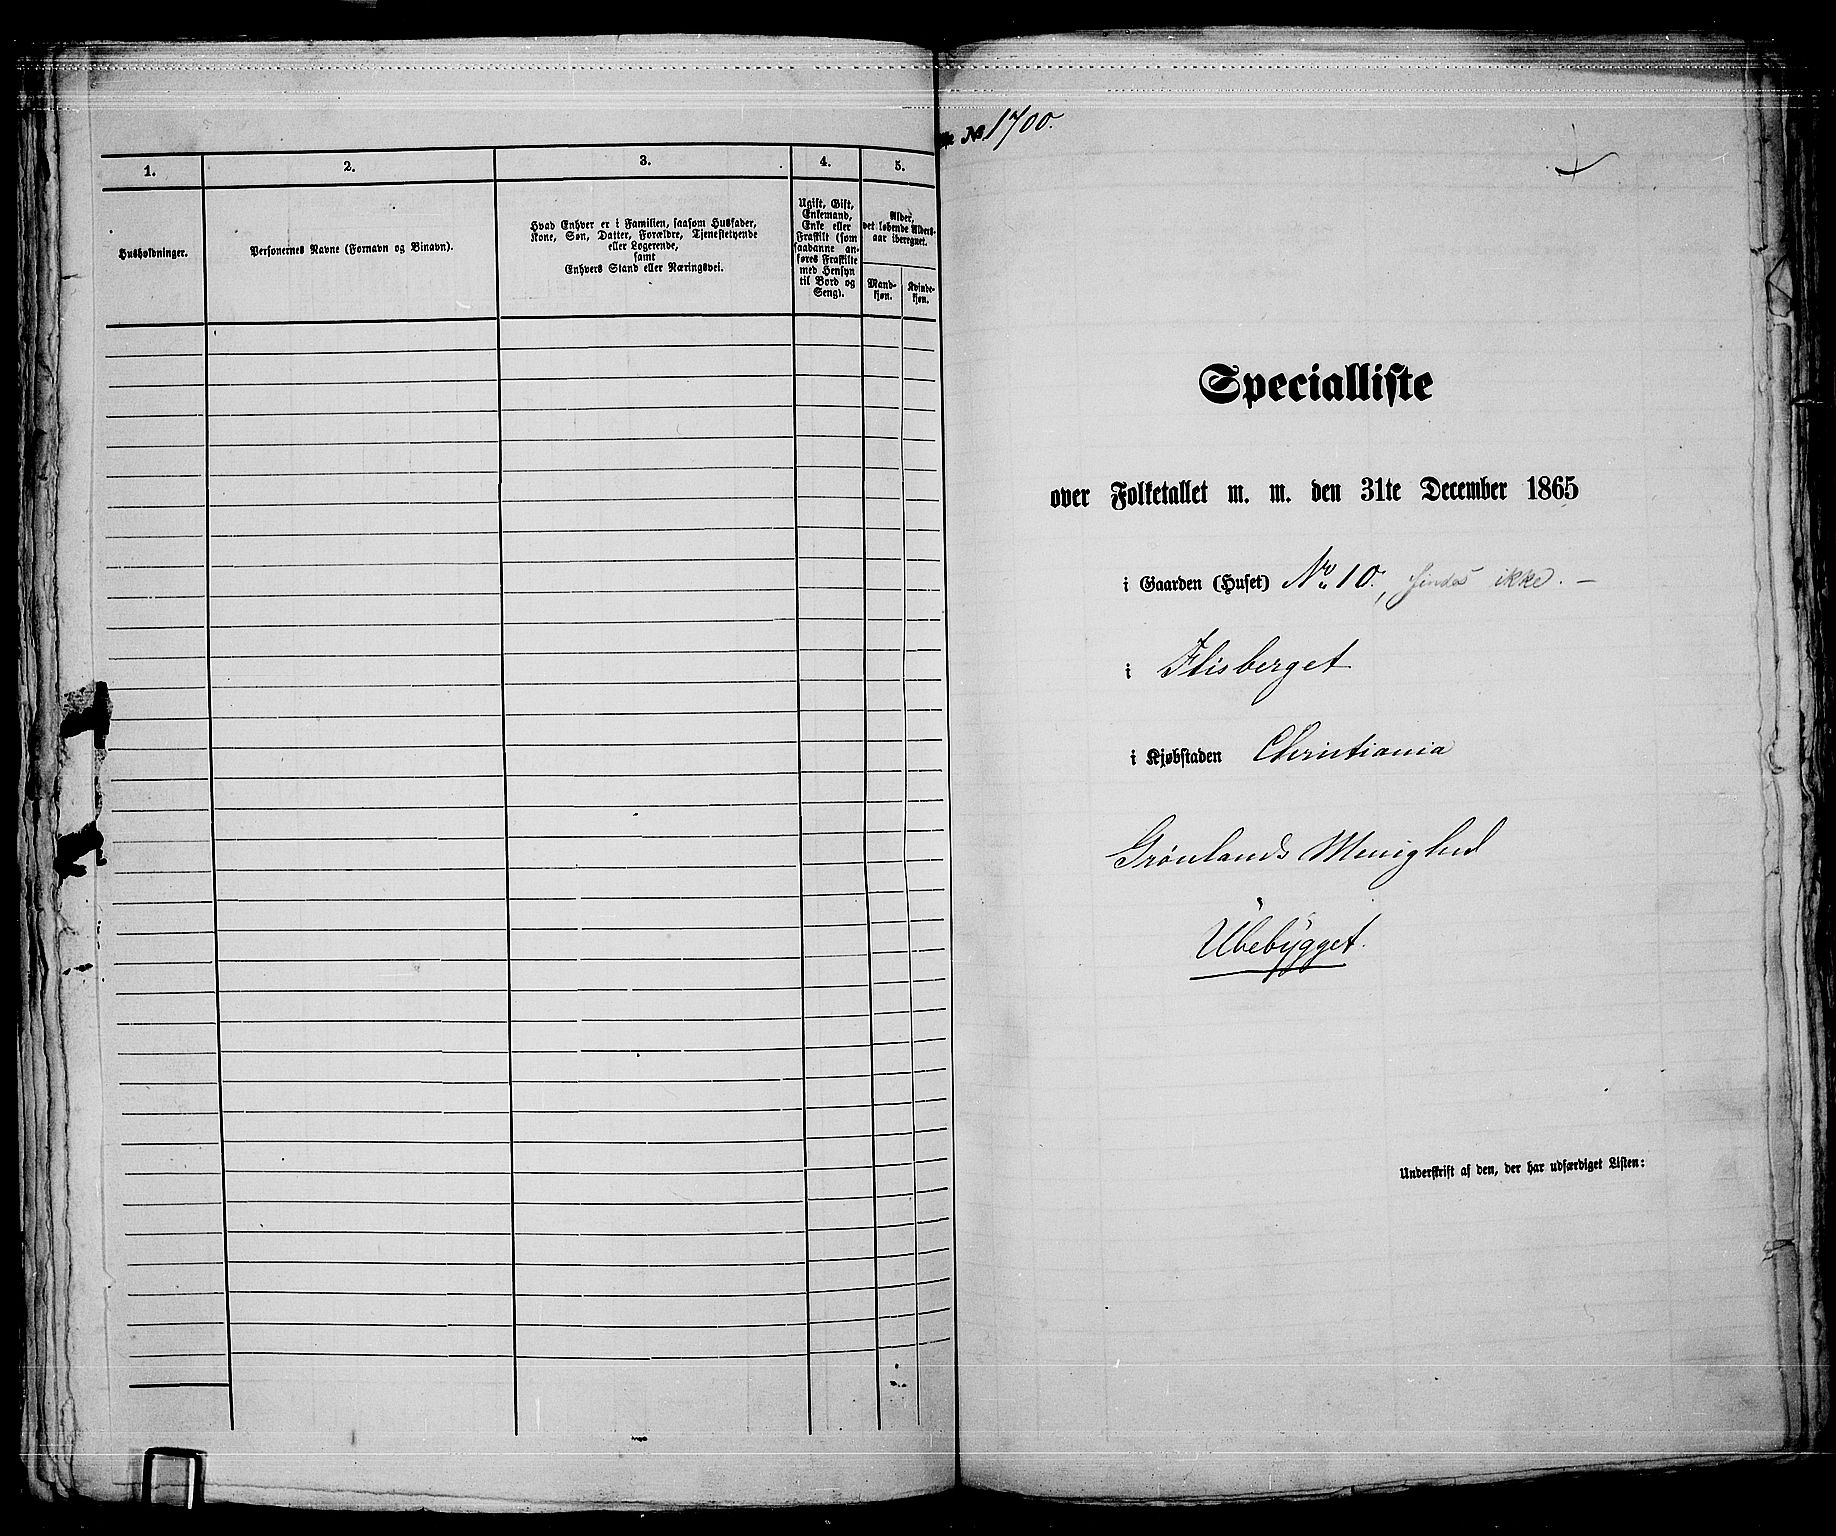 1.
2.
3.
4.
5.
Husholdninger.
Personernes Navne (Fornavn og Binavn).
Hvad Enhver er i Familien, saasom Husfader,
Kone, Søn, Datter, Forældre, Tjenestetyende
eller Logerende,
samt
Enhvers Stand eller Næringsvei.
Ugift, Gift,
Enkemand,
Enke eller
Fraskilt (som
saadanne an-
føres Fraskilte
med Hensyn
til Bord og
Seng).
Alder,
det løbende Alders-
aar iberegnet.
Mand-
kjøn.
Kvinde-
kjøn.
No 1700.
Specialliste
over Folketallet m. m. den 31te December 1865
i Gaarden (Huset) No 10., findes ikke. –
i Flisberget
i Kjøbstaden Christiania
Grønlands Menighed
Ubebygget.
Underskrift af den, der har udfærdiget Listen: